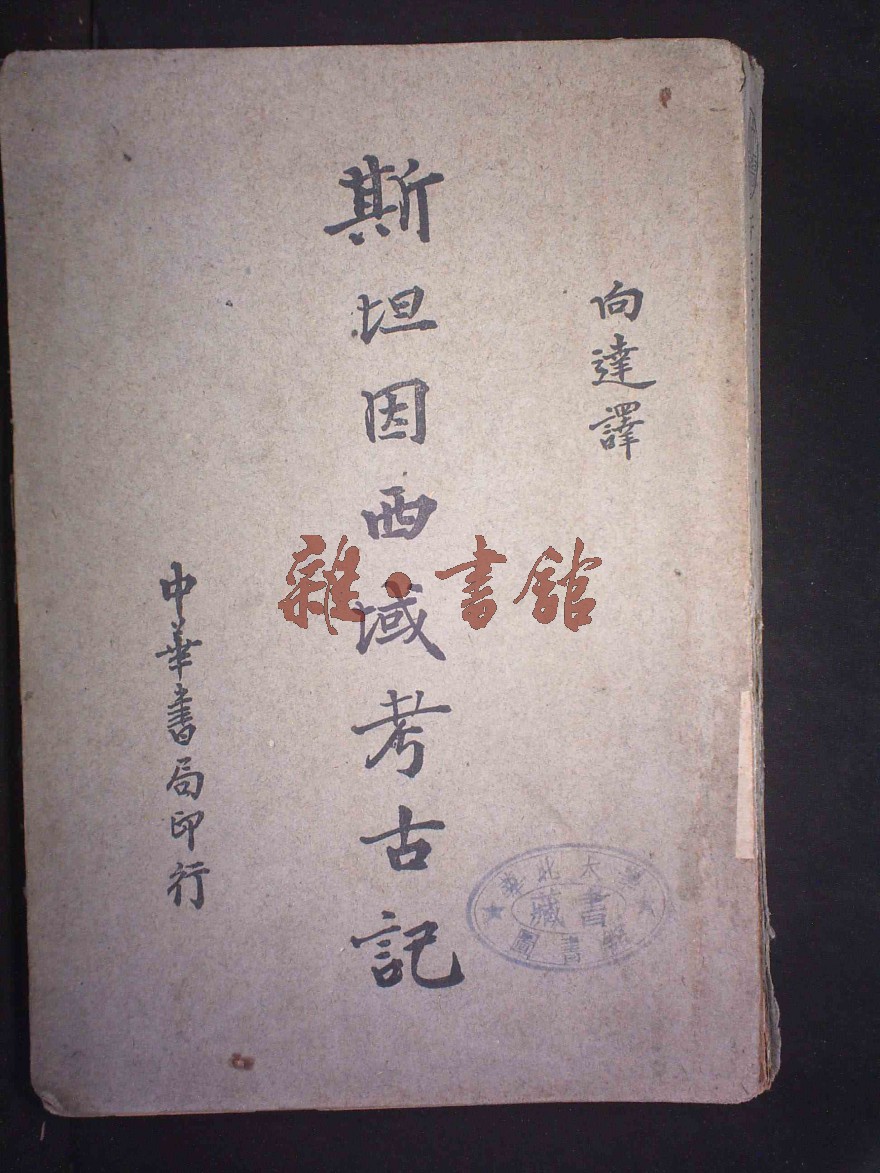 向達譯
斯坦因西域考古記
中華書局印行
雜·書館
華北大學
圖書館
藏書